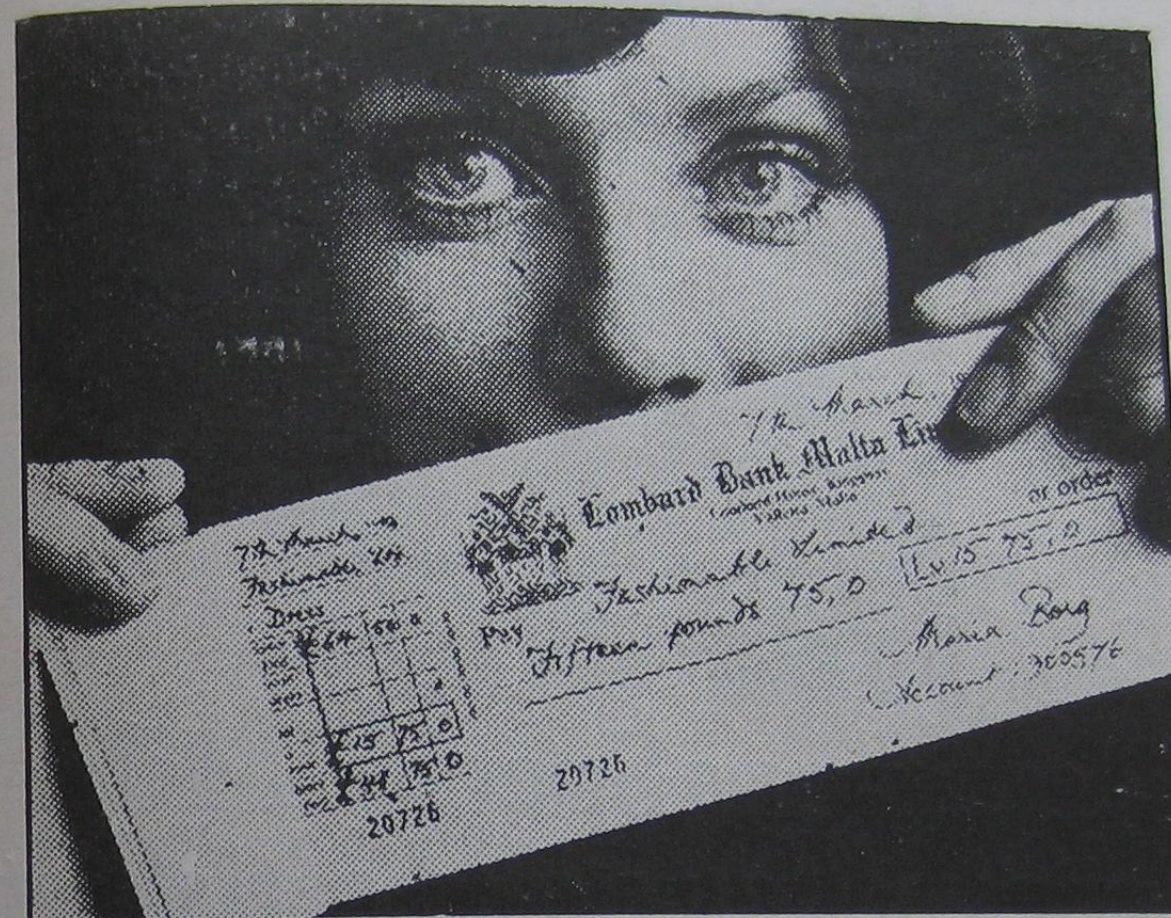 7th March
Fashionable Ltd
Dress
£64 500 0
0
£15 75 0
£48 75 0
20726
7th March
Lombard Bank Malta Lim
Lombard House,
Valletta Malta
or order
Pay Fashionable Limited
Fifteen pounds 75,0
£M15 75,0
Maria Borg
Account
20726